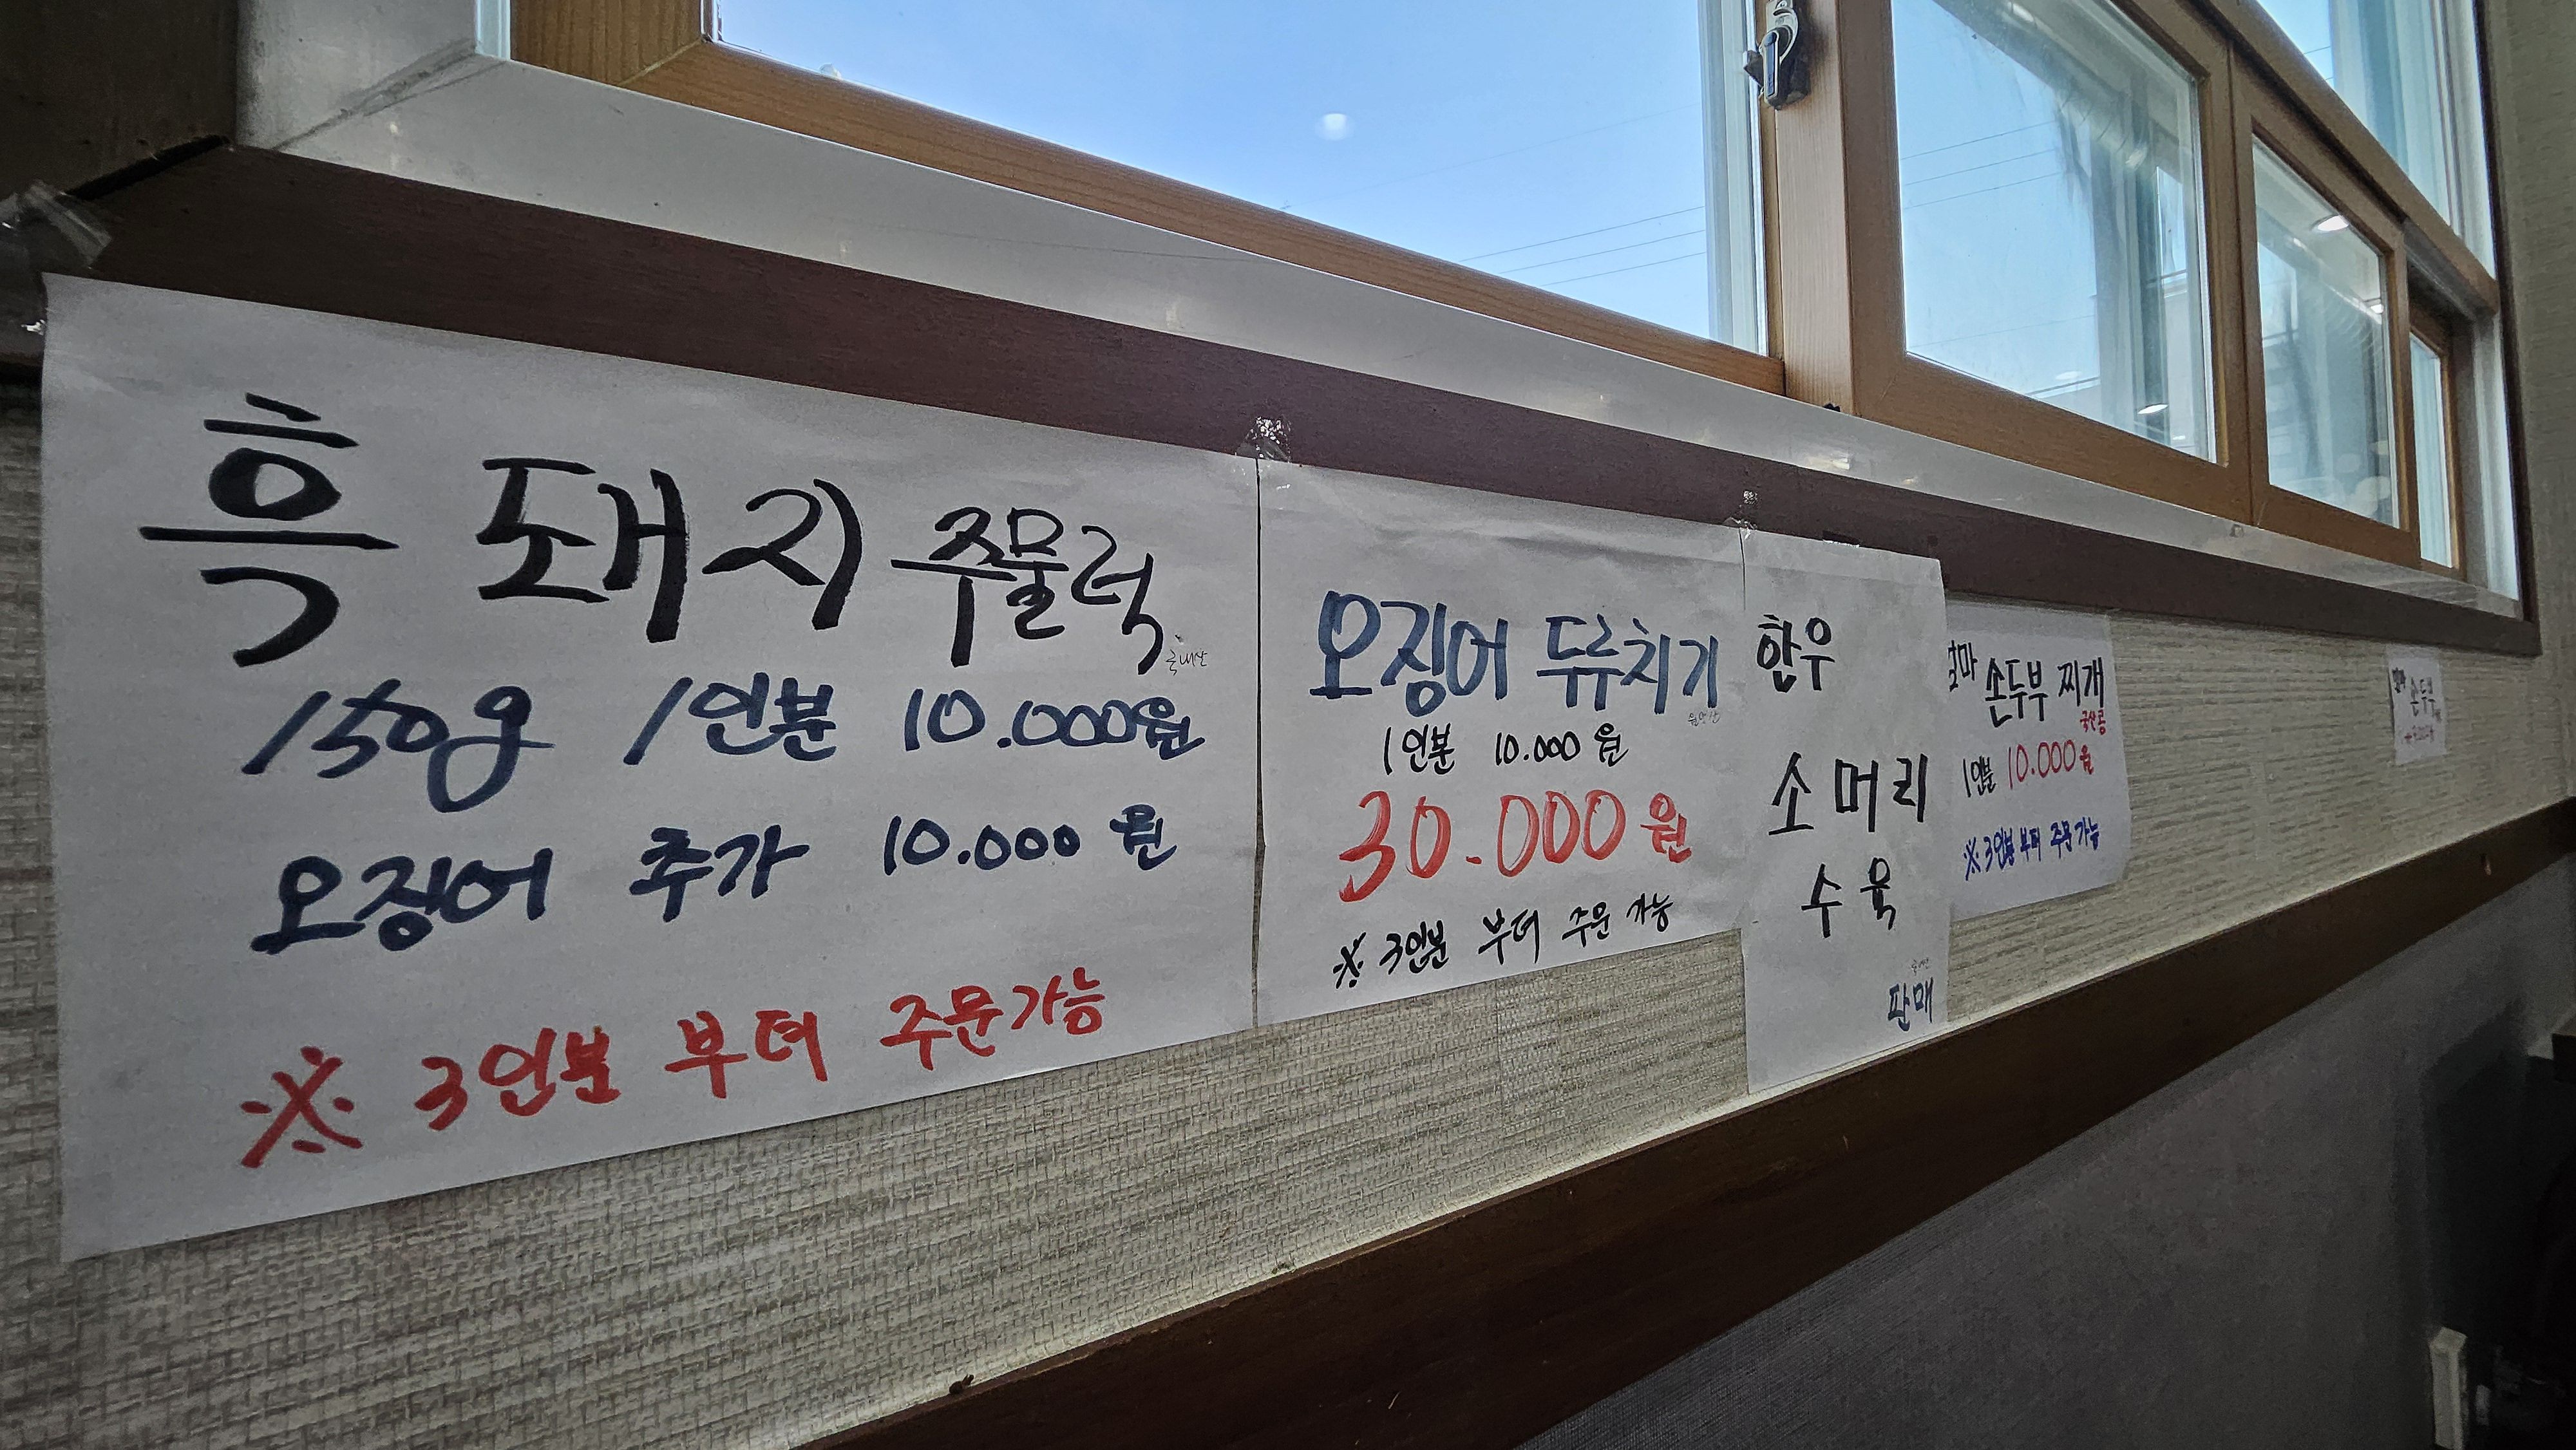 흑돼지 주물럭
국내산
150g 1인분 10.000원
오징어 추가 10.000원
※ 3인분 부터 주문가능
오징어 두루치기
원양산
1인분 10.000원
30.000원
※ 3인분 부터 주문 가능
한우
소머리
수육
국내산
판매
손두부 찌개
국산콩
1인분 10.000원
※ 3인분 부터 주문가능
손두부